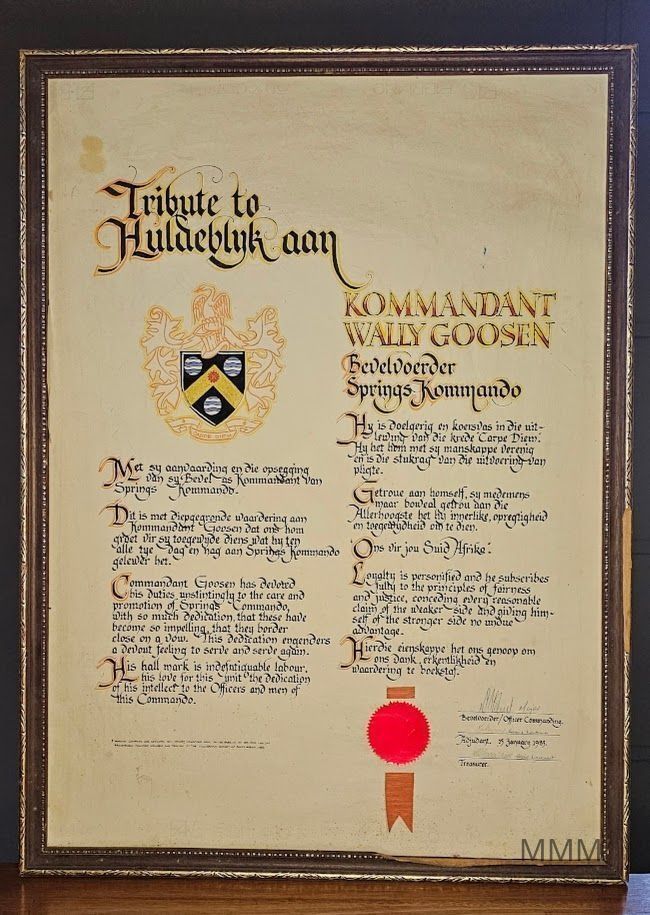 Tribute to
Huldeblyk aan
KOMMANDANT
WALLY GOOSEN
Bevelvoerder
Springs Kommando
CARPE DIEM
Met sy aanvaarding en die opsegging
van sy Bevel as Kommandant van
Springs Kommando.
Dit is met diepgegronde waardering aan
Kommandant Goosen dat ons hom
groet vir sy toegewyde diens, wat hy ten
alle tye Dag en nag aan Springs Kommando
gelewer het.
Commandant Goosen has devoted
his duties unstintingly to the care and
promotion of Springs Commando,
with so much dedication, that these have
become so impelling, that they border
close on a vow. This dedication engenders
a devout feeling to serve and serve again.
His hall mark is indefatiguable labour,
his love for this unit, the dedication
of his intellect to the Officers and men of
this Commando.
Hy is doelgerig en koersvas in die uit-
lewing van die krede 'Carpe Diem'.
Hy het hom met sy manskappe verenig
en is die stukrag van die uitvoering van
pligte.
Getroue aan homself, sy medemens
maar boweal getrou aan die
Allerhoogste het hy innerlike, opregtigheid
en toegewydheid om te dien.
'Ons vir jou Suid Afrika'.
Loyalty is personified and he subscribes
fully to the principles of fairness
and justice, conceding every reasonable
claim of the weaker side and giving him-
self of the stronger side no undue
advantage.
Hierdie eienskappe het ons genoop om
ons dank, erkentlikheid en
waardering te boekstaf.
Bevelvoerder/Officer Commanding.
Adjudant. 15 January 1983.
Treasurer.
MMM